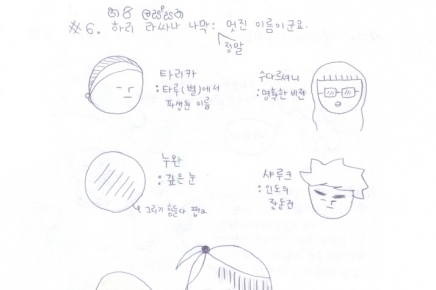 ※6. 하리 라싸나 나막: 멋진 이름이군요.
정말
타리카
:타루(별)에서
파생된 이름
수다르셔니
:명확한 비전
누완
:깊은 눈
그리기 힘들다
샤루크
:인도의